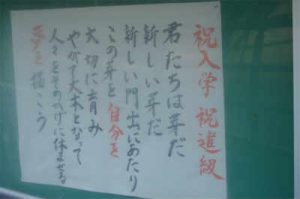 祝入学 祝進級
君たちは芽だ
新しい芽だ
新しい門出にあたり
この芽を自分を
大切に育み
やがて大木となって
人々をその影に休ませる
夢を描こう